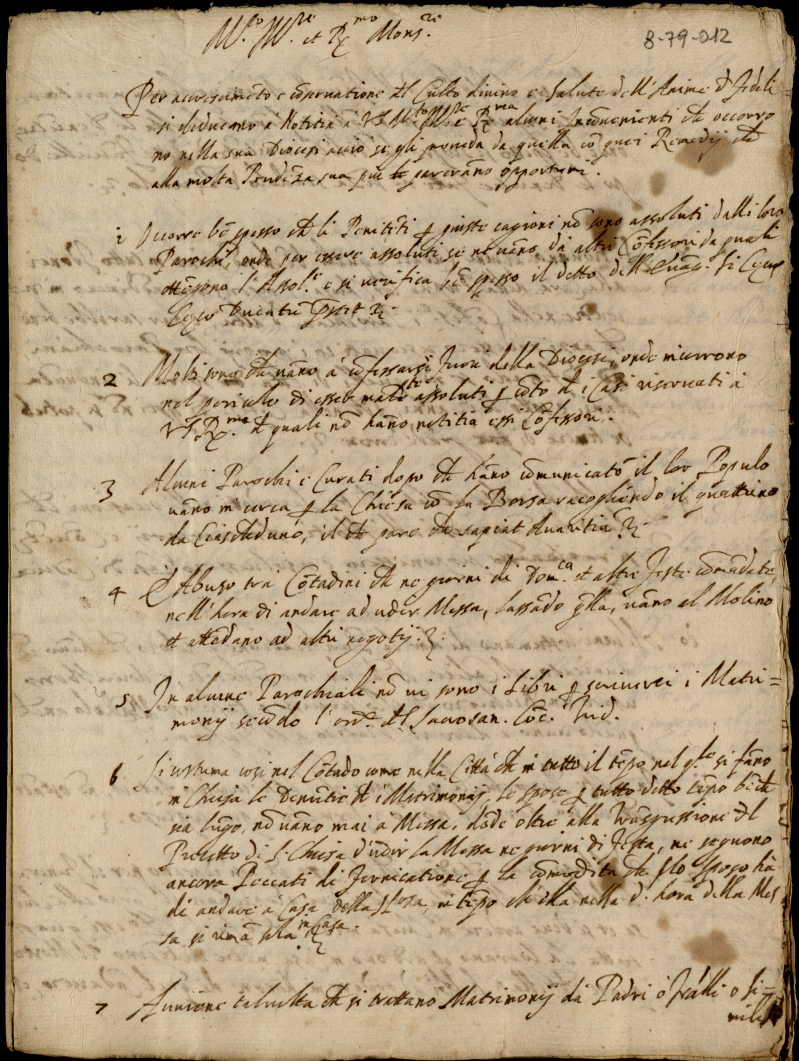 M.to Ill.re et R.mo Mons.re
8-79-012
Per accrescimẽto e cõservatione del Culto divino e salute dell'Anime de fideli
si deducono à Notitia à V.S. M.to Ill.re e R.ma alcuni Incõvenienti che occorro
no nella sua Diocesi acciò se gli proveda da quella cõ quei Remedij che
alla molta Prudẽza sua pareranno opportuni.
1 Occorre bẽ spesso che li Penitẽti p giuste cagioni nõ sono assoluti dalli loro
Parochi, onde per essere assoluti se ne vãno da altri Cõfessori da quali
ottẽgono l'Assol.e e si verifica bẽ spesso il detto dell'Evãg. Si Cecus
Ceco Ducatũ prestet &
2 Molti sono che vãno à cõfessarsi fuori della Diocesi, onde incorrono
nel pericolo di esser male assoluti p cõto de i Casi riservati à
V.S. R.ma de quali nõ hãno notitia essi Cõfessori.
3 Alcuni Parochi e Curati dopo che hãno comunicato il lor Populo
vãno in circa p la Chiesa cõ la Borsa racogliendo il quattrino
da Ciascheduno, il che pare che sapiat Avaritiã &
4 È Abuso trà Cõtadini che ne giorni di Dom.ca et altre feste comãdate,
nell'hora di andare ad udir Messa, lassãdo q.lla, vãno al Molino
et attẽdano ad altri negotij. &
5 In alcune Parochiali nõ vi sono i Libri p scrivervi i Matri=
monij secõdo l'ord.e del Sacrosan. Cõc. Trid.
6 Si costuma cosi nel Cõtado come nella Città che in tutto il tẽpo nel q.le si fãno
in Chiesa le Denũtie de i Matrimonij, le spose p tutto detto tẽpo bẽ che
sia lũgo, nõ vãno mai à Messa, dõde oltre alla trãsgressione del
Precetto di S. Chiesa d'udir la Messa ne giorni di festa, ne seguono
ancora Peccati di fornicatione p la cõmodità che lo sposo hà
di andare à Casa della sposa, in tẽpo ch'ella nella d. hora della Mes
sa si rimã sola in Casa. &
7 Aviene talvolta che si trattano Matrimonij dà Padri ò frãlli o si=
mili